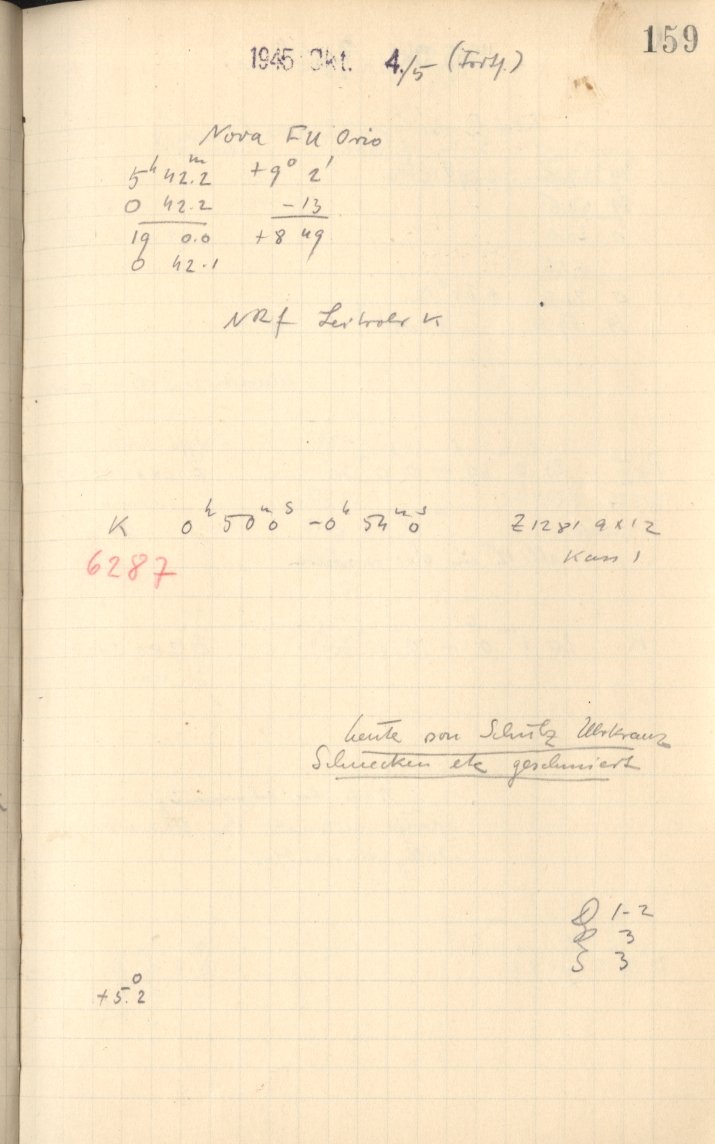 159
1945 Okt. 4./5 (Forts.)
Nova FU Orio
5ʰ 42.2ᵐ +9° 2'
0 42.2 -13
19 0.0 +8 49
0 42.1
NRf Leitrohr K
K 0ʰ 50ᵐ 0ˢ - 0ʰ 54ᵐ 0ˢ Z1281 9x12
6287 Kass 1
heute von Schütz Uhrkranz
Schnecken etc geschmiert
D 1-2
R 3
S 3
+5.°2